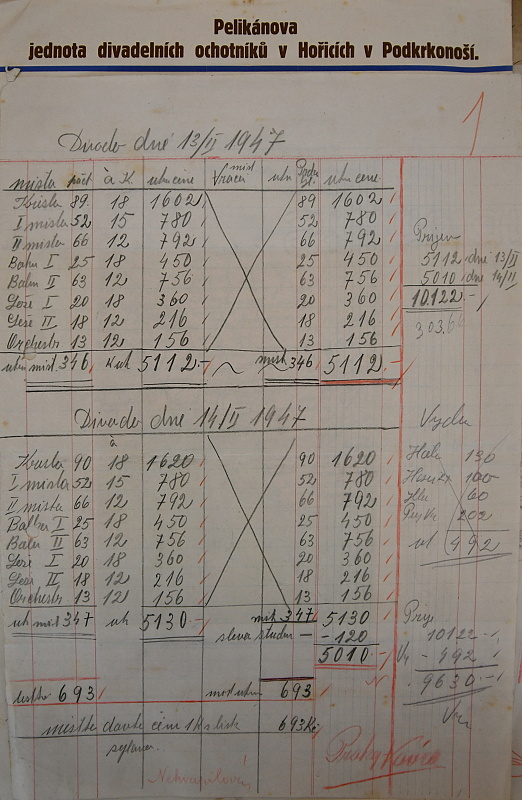 Pelikánova
jednota divadelních ochotníků v Hořicích v Podkrkonoší.
1
Divadlo dne 13/II 1947
místa počt à K. úhrn cene míst Vrací úhr Podr úhr. cene
Křesla 89 18 1602 89 1602
I místa 52 15 780 52 780
II místa 66 12 792 66 792
Balon I 25 18 450 25 450
Balon II 63 12 756 63 756
Lože I 20 18 360 20 360
Lože II 18 12 216 18 216
Orchestr 13 12 156 13 156
úhrn míst 346 K úh 5112.- míst 346 5112.-
Příjem
5112 dne 13/II
5010 dne 14/II
10.122.-
303.66
Divadlo dne 14/II 1947
à
Křesla 90 18 1620 90 1620
I místa 52 15 780 52 780
II místa 66 12 792 66 792
Balkon I 25 18 450 25 450
Balon II 63 12 756 63 756
Lože I 20 18 360 20 360
Lože II 18 12 216 18 216
Orchestr 13 12 156 13 156
úh míst 347 úh 5130.- míst 347 5130
sleva studen — -120
5010.-
Vydán
130
100
60
202
úh 492
Příj
10122.-
Vy - 492
9630.-
693 693
místka dávka činí 1 K s lístk 693 Kč